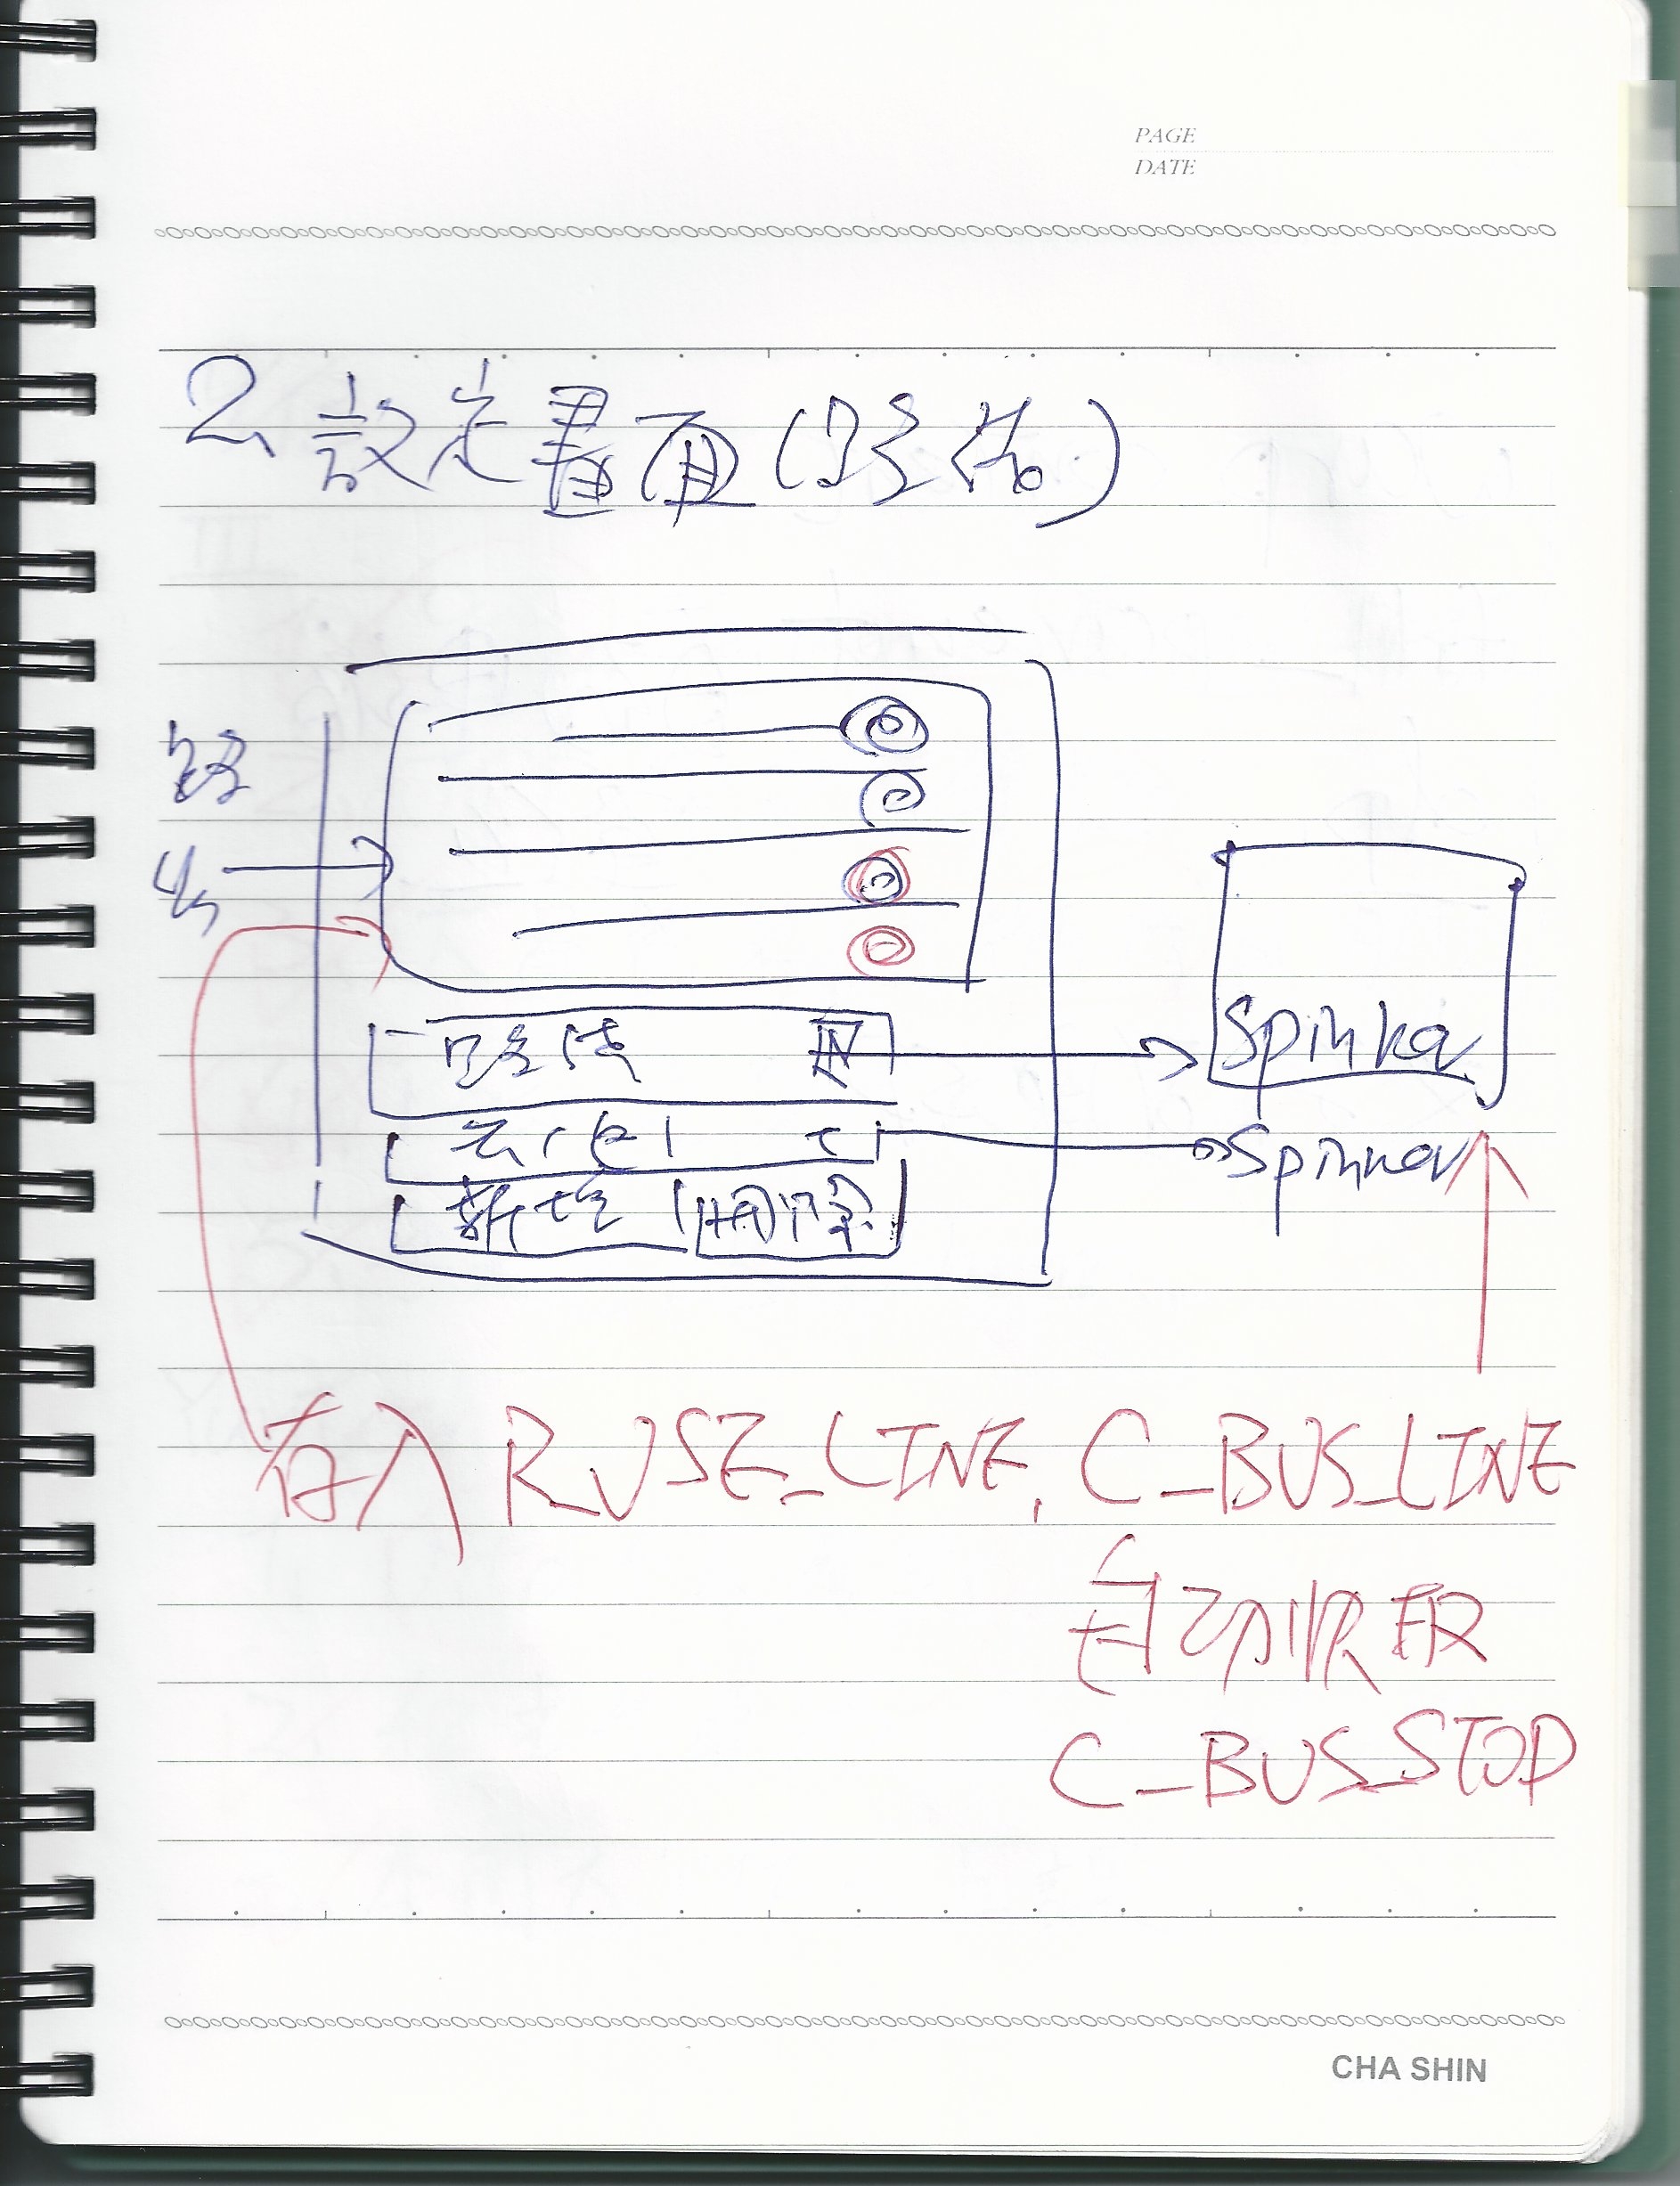 PAGE
DATE
2、設定畫面(路線)
路
線
路線
Spinner
去
Spinner
新增 刪除
存入 R_USE_LINE, C_BUS_LINE
自動收取
C_BUS_STOP
CHA SHIN